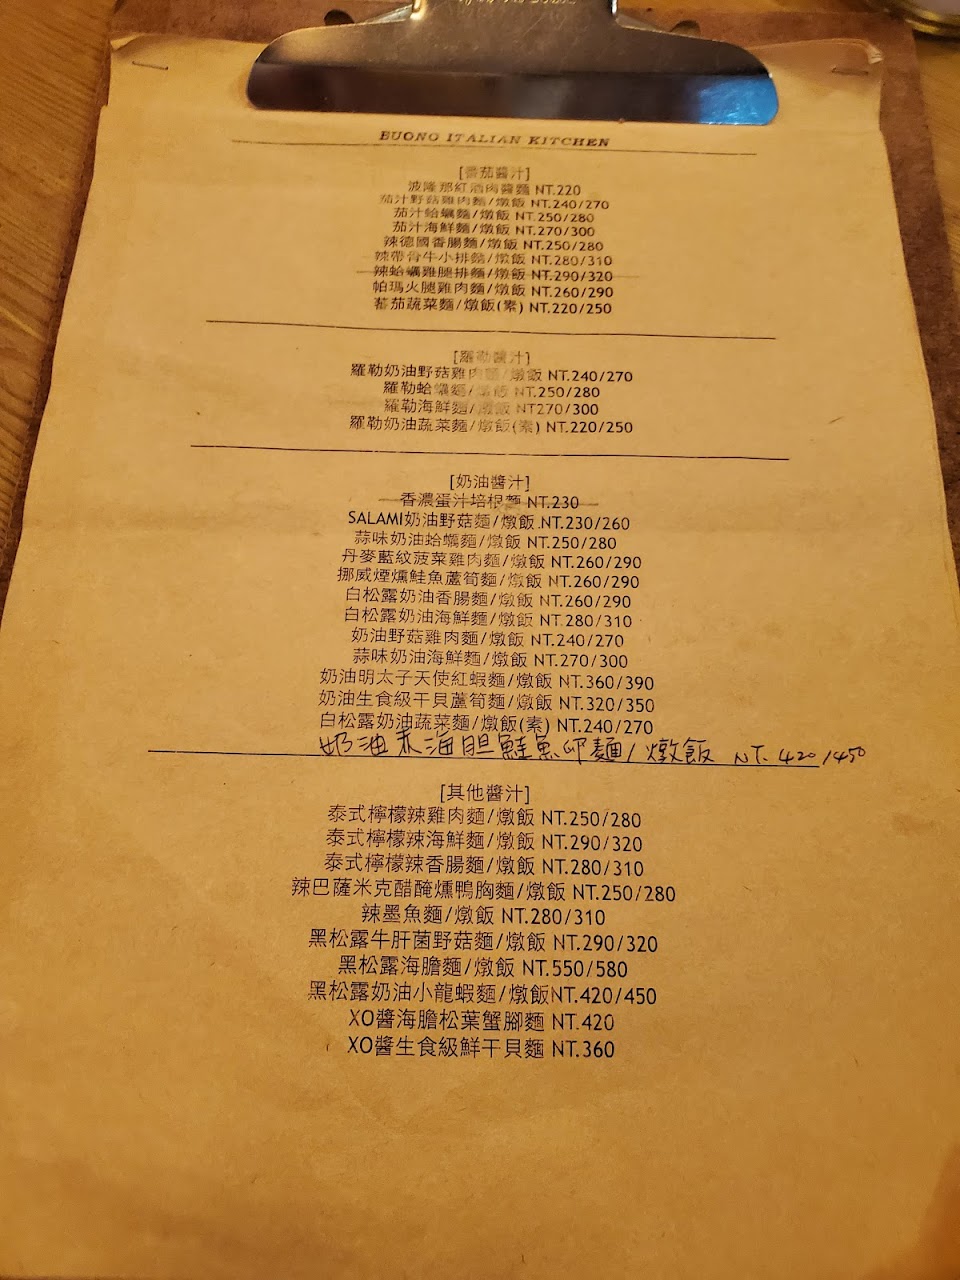 BUONO ITALIAN KITCHEN
[番茄醬汁]
波隆那紅酒肉醬麵 NT.220
茄汁野菇雞肉麵/燉飯 NT.240/270
茄汁蛤蠣麵/燉飯 NT.250/280
茄汁海鮮麵/燉飯 NT.270/300
辣德國香腸麵/燉飯 NT.250/280
辣帶骨牛小排麵/燉飯 NT.280/310
辣蛤蠣雞腿排麵/燉飯 NT.290/320
帕瑪火腿雞肉麵/燉飯 NT.260/290
蕃茄蔬菜麵/燉飯(素) NT.220/250
[羅勒醬汁]
羅勒奶油野菇雞肉麵/燉飯 NT.240/270
羅勒蛤蠣麵/燉飯 NT.250/280
羅勒海鮮麵/燉飯 NT270/300
羅勒奶油蔬菜麵/燉飯(素) NT.220/250
[奶油醬汁]
香濃蛋汁培根麵 NT.230
SALAMI奶油野菇麵/燉飯 NT.230/260
蒜味奶油蛤蠣麵/燉飯 NT.250/280
丹麥藍紋菠菜雞肉麵/燉飯 NT.260/290
挪威煙燻鮭魚蘆筍麵/燉飯 NT.260/290
白松露奶油香腸麵/燉飯 NT.260/290
白松露奶油海鮮麵/燉飯 NT.280/310
奶油野菇雞肉麵/燉飯 NT.240/270
蒜味奶油海鮮麵/燉飯 NT.270/300
奶油明太子天使紅蝦麵/燉飯 NT.360/390
奶油生食級干貝蘆筍麵/燉飯 NT.320/350
白松露奶油蔬菜麵/燉飯(素) NT.240/270
奶油海胆鮭魚卵麵/燉飯 NT.420/450
[其他醬汁]
泰式檸檬辣雞肉麵/燉飯 NT.250/280
泰式檸檬辣海鮮麵/燉飯 NT.290/320
泰式檸檬辣香腸麵/燉飯 NT.280/310
辣巴薩米克醋醃燻鴨胸麵/燉飯 NT.250/280
辣墨魚麵/燉飯 NT.280/310
黑松露牛肝菌野菇麵/燉飯 NT.290/320
黑松露海膽麵/燉飯 NT.550/580
黑松露奶油小龍蝦麵/燉飯NT.420/450
XO醬海膽松葉蟹腳麵 NT.420
XO醬生食級鮮干貝麵 NT.360